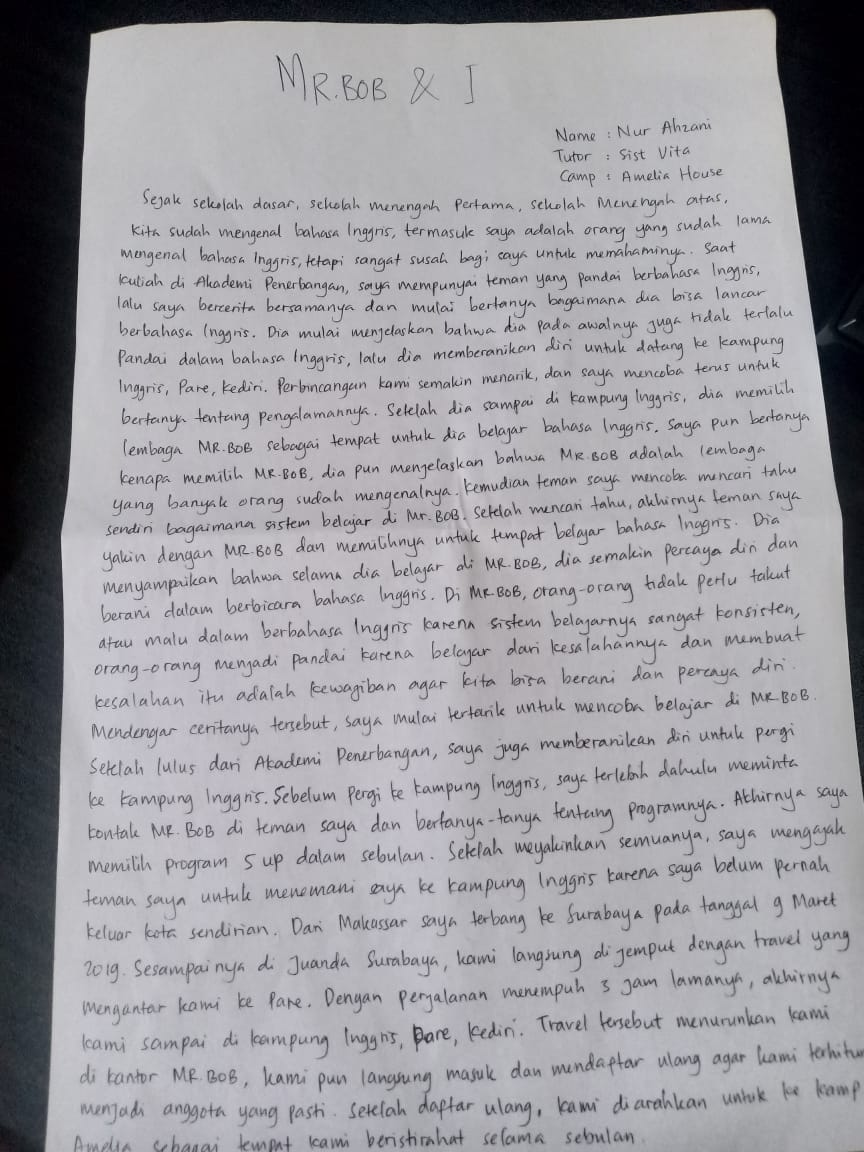 MR.BOB & I
Name : Nur Ahzani
Tutor : Sist Vita
Camp : Amelia House
Sejak sekolah dasar, sekolah menengah Pertama, sekolah Menengah atas,
kita sudah mengenal bahasa Inggris, termasuk saya adalah orang yang sudah lama
mengenal bahasa Inggris, tetapi sangat susah bagi saya untuk memahaminya. Saat
kuliah di Akademi Penerbangan, saya mempunyai teman yang pandai berbahasa Inggris,
lalu saya bercerita bersamanya dan mulai bertanya bagaimana dia bisa lancar
berbahasa Inggris. Dia mulai menjelaskan bahwa dia pada awalnya juga tidak terlalu
Pandai dalam bahasa Inggris, lalu dia memberanikan diri untuk datang ke kampung
Inggris, Pare, Kediri. Perbincangan kami semakin menarik, dan saya mencoba terus untuk
bertanya tentang pengalamannya. Setelah dia sampai di kampung Inggris, dia memilih
lembaga MR.BOB sebagai tempat untuk dia belajar bahasa Inggris. Saya pun bertanya
kenapa memilih MR.BOB, dia pun menjelaskan bahwa MR.BOB adalah lembaga
yang banyak orang sudah mengenalnya. Kemudian teman saya mencoba mencari tahu
sendiri bagaimana sistem belajar di Mr.BOB. Setelah mencari tahu, akhirnya teman saya
yakin dengan MR.BOB dan memilihnya untuk tempat belajar bahasa Inggris. Dia
menyampaikan bahwa selama dia belajar di MR.BOB, dia semakin percaya diri dan
berani dalam berbicara bahasa Inggris. Di MR.BOB, orang-orang tidak perlu takut
atau malu dalam berbahasa Inggris karena sistem belajarnya sangat konsisten,
orang-orang menjadi pandai karena belajar dari kesalahannya dan membuat
kesalahan itu adalah kewagiban agar kita bisa berani dan percaya diri.
Mendengar ceritanya tersebut, saya mulai tertarik untuk mencoba belajar di MR.BOB.
Setelah lulus dari Akademi Penerbangan, saya juga memberanikan diri untuk pergi
ke kampung Inggris. Sebelum Pergi ke kampung Inggris, saya terlebih dahulu meminta
kontak MR.BOB di teman saya dan bertanya-tanya tentang programnya. Akhirnya saya
memilih program 5 up dalam sebulan. Setelah meyakinkan semuanya, saya mengajak
teman saya untuk menemani saya ke kampung Inggris karena saya belum pernah
keluar kota sendirian. Dari Makassar saya terbang ke Surabaya pada tanggal 9 Maret
2019. Sesampainya di Juanda Surabaya, kami langsung di jemput dengan travel yang
mengantar kami ke Pare. Dengan perjalanan menempuh 3 jam lamanya, akhirnya
kami sampai di kampung Inggris, Pare, Kediri. Travel tersebut menurunkan kami
di kantor MR.BOB, kami pun langsung masuk dan mendaftar ulang agar kami terhitun
menjadi anggota yang pasti. Setelah daftar ulang, kami diarahkan untuk ke kamp
Amelia sebagai tempat kami beristirahat selama sebulan.